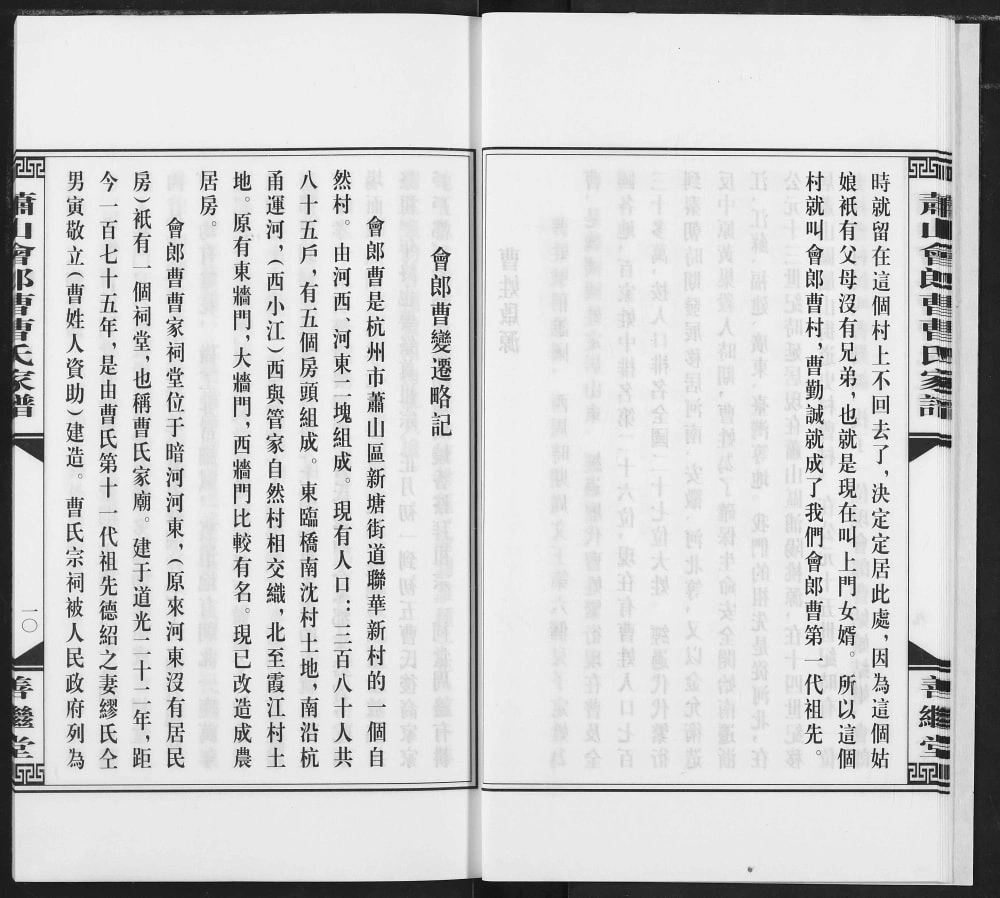 蕭山會郎曹曹氏家譜
善繼堂
時就留在這個村上不回去了，決定定居此處，因為這個姑
娘衹有父母沒有兄弟，也就是現在叫上門女婿。所以這個
村就叫會郎曹村，曹勤誠就成了我們會郎曹第一代祖先。
會郎曹變遷略記
會郎曹是杭州市蕭山區新塘街道聯華新村的一個自
然村。由河西、河東二塊組成。現有人口：三百八十人共
八十五戶，有五個房頭組成。東臨橋南沈村土地，南沿杭
甬運河，（西小江）西與管家自然村相交織，北至霞江村土
地。原有東牆門，大牆門，西牆門比較有名。現已改造成農
居房。
會郎曹曹家祠堂位于暗河河東，（原來河東沒有居民
房）衹有一個祠堂，也稱曹氏家廟。建于道光二十二年，距
今一百七十五年，是由曹氏第十一代祖先德紹之妻繆氏仝
男寅敬立（曹姓人資助）建造。曹氏宗祠被人民政府列為
蕭山會郎曹曹氏家譜
一〇
善繼堂